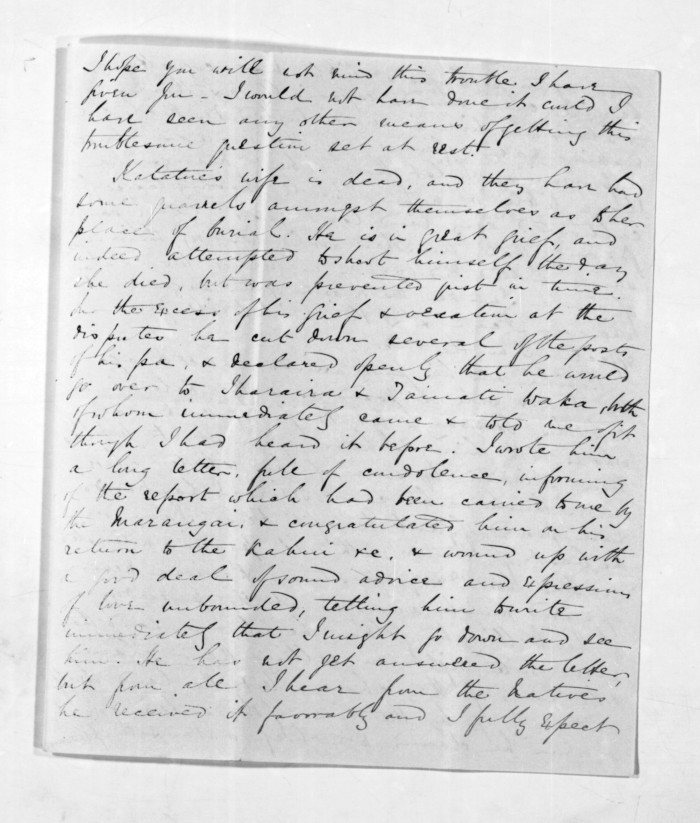 I hope you will not mind this trouble I have
given you - I would not have done it could I
have seen any other means of getting this
troublesome question set at rest.
Katatu's wife is dead, and they have had
some quarrels amongst themselves as to her
place of burial. He is in great grief, and
indeed attempted to shoot himself the day
she died, but was prevented just in time.
In the excess of his grief & vexation at the
disputes he cut down several of the posts
of his pa, & declared openly that he would
go over to Iharaira & Taimati Waka, both
of whom immediately came & told me of it
though I had heard it before. I wrote him
a long letter, full of condolence, informing
of the report which had been carried to me by
the Marangai, & congratulated him on his
return to the Kahui &c. & wound up with
a good deal of sound advice and expressions
of love unbounded, telling him to write
immediately that I might go down and see
him. He has not yet answered the letter,
but from all I hear from the Natives
he received it favorably and I fully expect